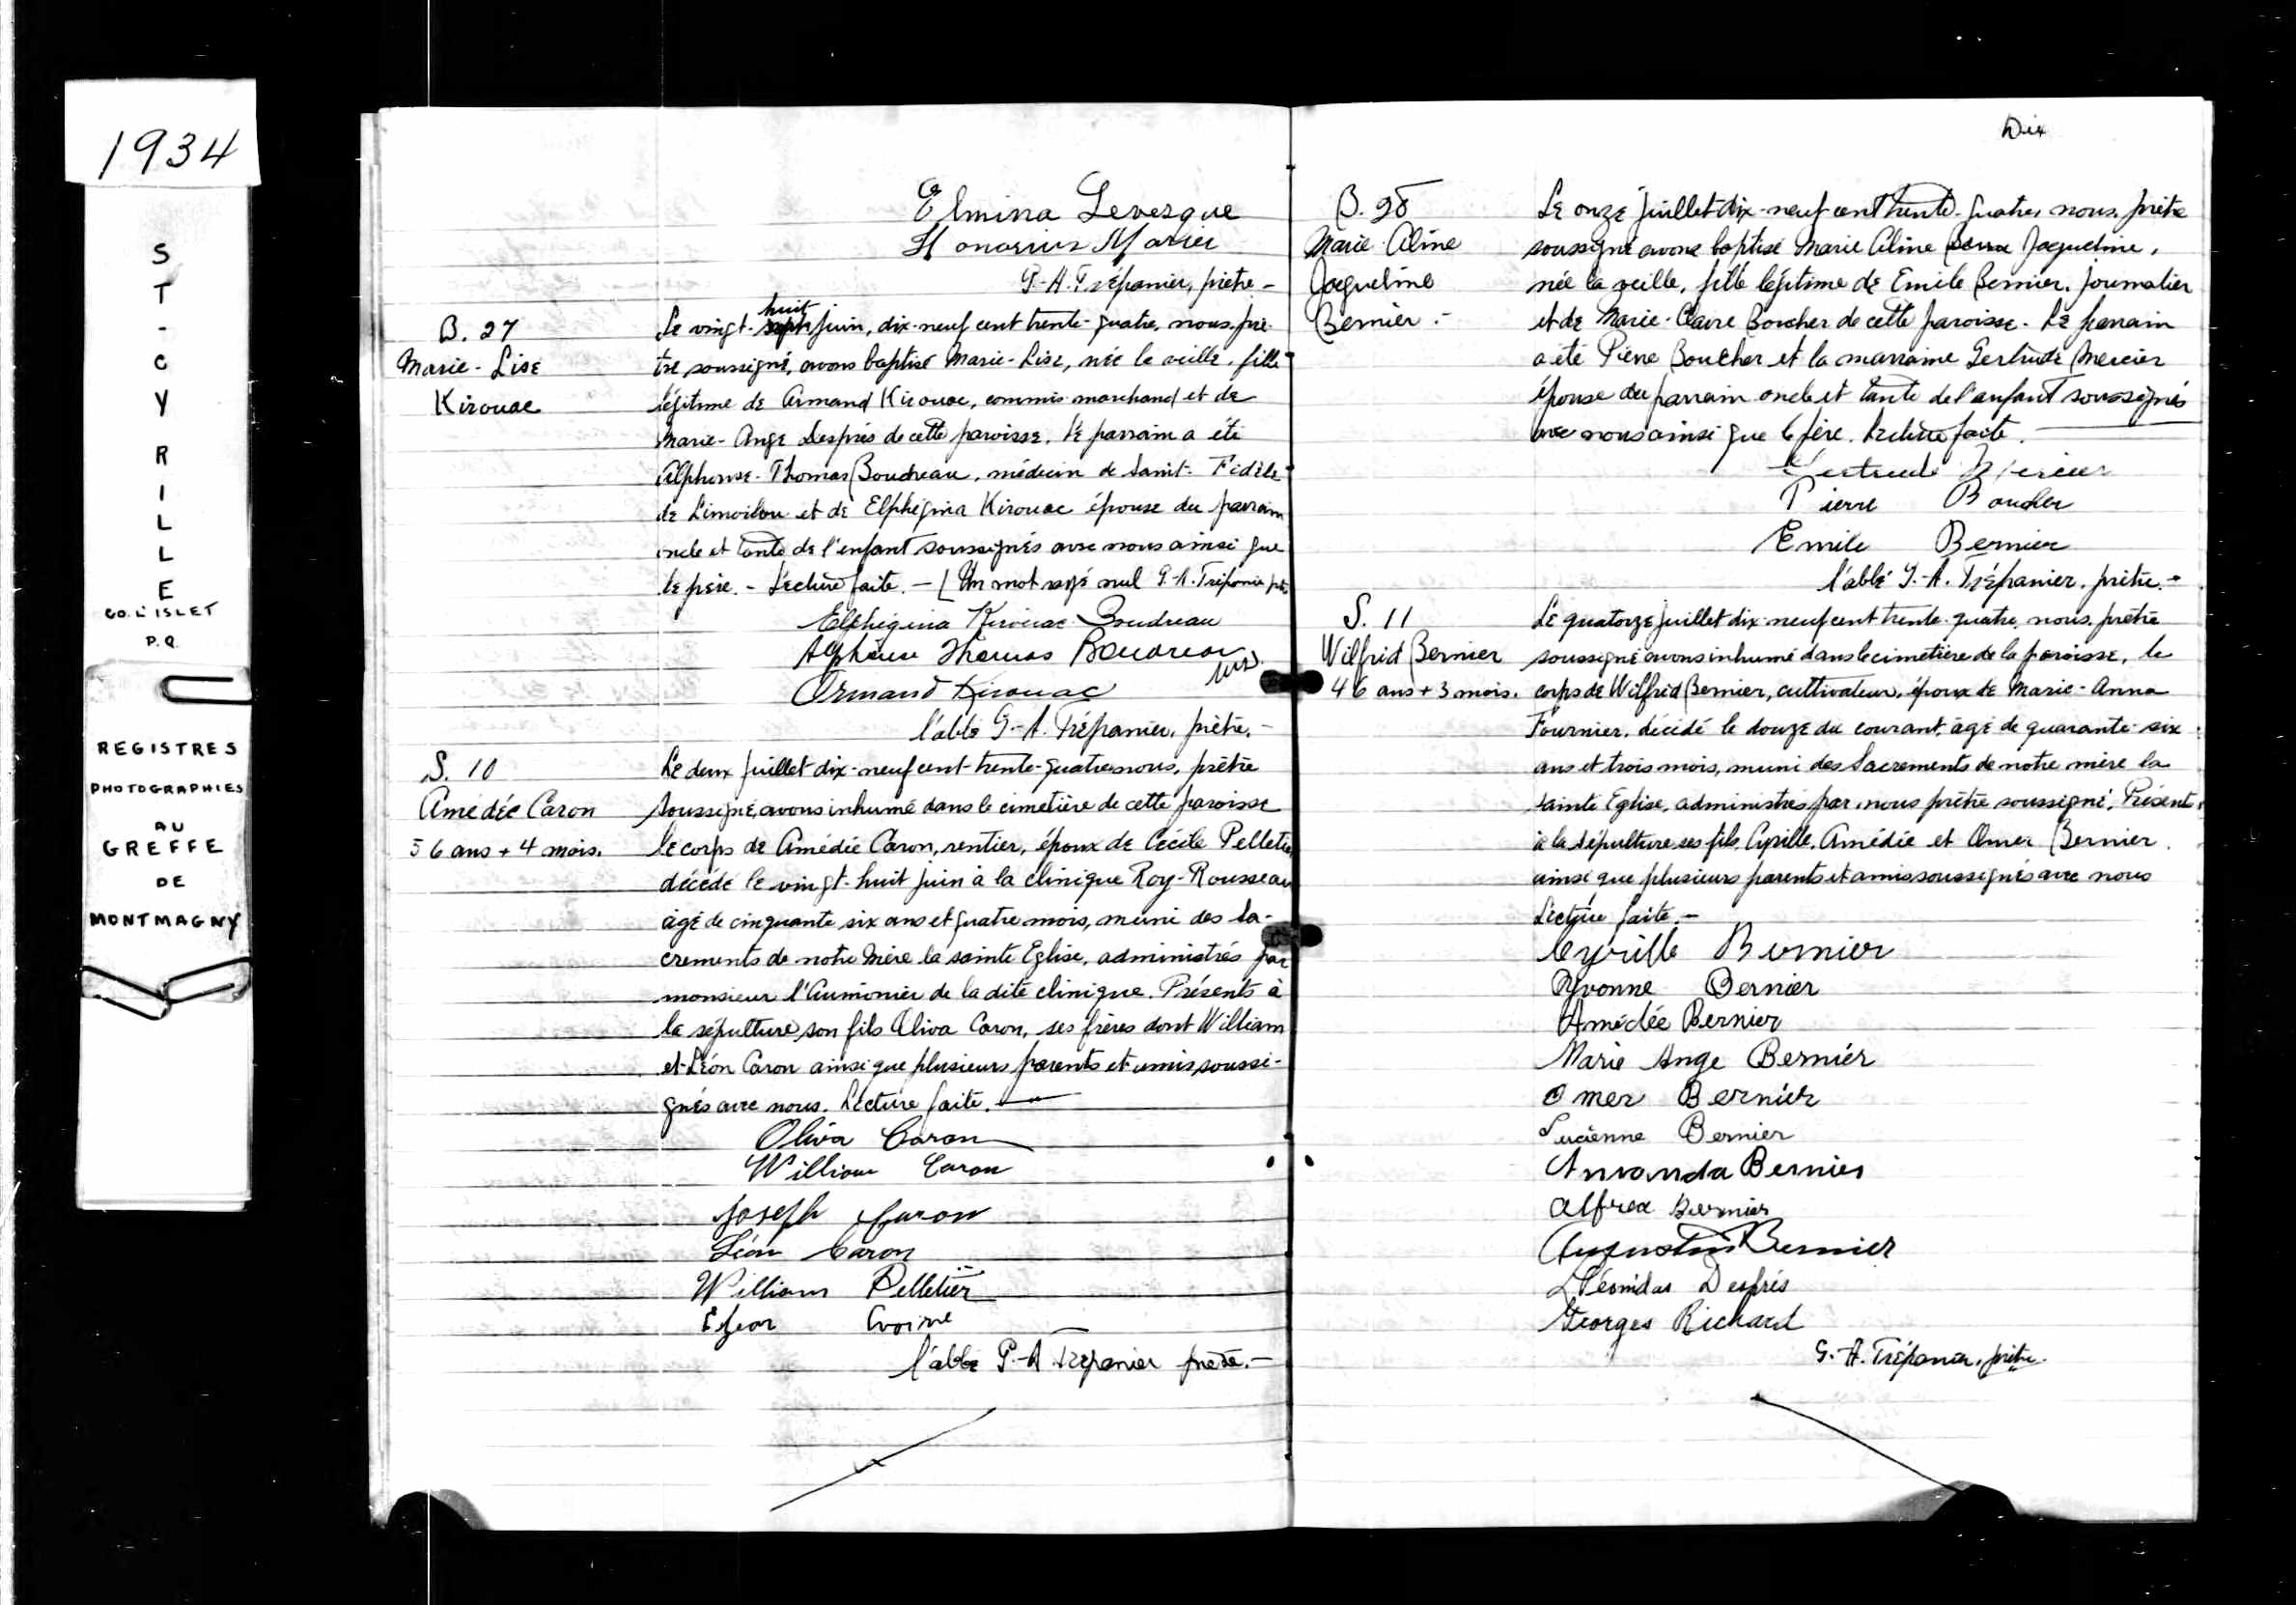 1934
S
T
-
C
Y
R
I
L
L
E
CO. L'ISLET
P.Q.
REGISTRES
PHOTOGRAPHIES
AU
GREFFE
DE
MONTMAGNY
Elmina Levesque
Honorius Morier
G.-A. Trépanier, prêtre -
B. 27
Marie-Lise
Kirouac
huit
Le vingt-sept juin, dix-neuf cent trente-quatre, nous, prê-
tre soussigné, avons baptisé Marie-Lise, née la veille, fille
légitime de Armand Kirouac, commis marchand et de
Marie-Ange Després de cette paroisse. Le parrain a été
Alphonse-Thomas Boudreau, médecin de Saint-Fidèle
de Limoilou et de Elphégina Kirouac épouse du parrain
oncle et tante de l'enfant soussignés avec nous ainsi que
le père. - Lecture faite. - [Un mot rayé nul G.-A. Trépanier ptr.
Elphégina Kirouac-Boudreau
Alphonse Thomas Boudreau
M.D.
Armand Kirouac
l'abbé G.-A. Trépanier, prêtre. -
S. 10
Amédée Caron
56 ans + 4 mois.
Le deux juillet dix-neuf cent-trente-quatre nous, prêtre
soussigné, avons inhumé dans le cimetière de cette paroisse
le corps de Amédée Caron, rentier, époux de Cécile Pelletier
décédé le vingt-huit juin à la clinique Roy-Rousseau
âgé de cinquante six ans et quatre mois, muni des Sa-
crements de notre Mère la sainte Eglise, administrés par
monsieur l'Aumônier de la dite clinique. Présents à
la sépulture son fils Oliva Caron, ses frères dont William
et Léon Caron ainsi que plusieurs parents et amis, soussi-
gnés avec nous. Lecture faite. -
Oliva Caron
William Caron
Joseph Caron
Léon Caron
William Pelletier
l'abbé G.-A. Trépanier prêtre. -
Dix
B. 28
Marie Aline
Jaqueline
Bernier. -
Le onze juillet dix-neuf cent trente-quatre, nous, prêtre
soussigné avons baptisé Marie Aline Jaqueline,
née la veille, fille légitime de Emile Bernier, journalier
et de Marie-Claire Boucher de cette paroisse. Le parrain
a été Pierre Boucher et la marraine Gertrude Mercier
épouse du parrain oncle et tante de l'enfant soussignés
avec nous ainsi que le père. Lecture faite. -
Gertrude Mercier
Pierre Boucher
Emile Bernier
l'abbé G.-A. Trépanier, prêtre. -
S. 11
Wilfrid Bernier
46 ans + 3 mois.
Le quatorze juillet dix-neuf cent trente-quatre, nous, prêtre
soussigné avons inhumé dans le cimetière de la paroisse, le
corps de Wilfrid Bernier, cultivateur, époux de Marie-Anna
Fournier, décédé le douze du courant, âgé de quarante-six
ans et trois mois, muni des Sacrements de notre mère la
sainte Eglise, administrés par nous prêtre soussigné. Présents
à la sépulture ses fils, Cyrille, Amédée et Omer Bernier
ainsi que plusieurs parents et amis soussignés avec nous
Lecture faite. -
Cyrille Bernier
Yvonne Bernier
Amédée Bernier
Marie Ange Bernier
Omer Bernier
Lucienne Bernier
Amanda Bernier
Alfred Bernier
Augustin Bernier
Léonidas Després
Georges Richard
G.-A. Trépanier, prêtre.